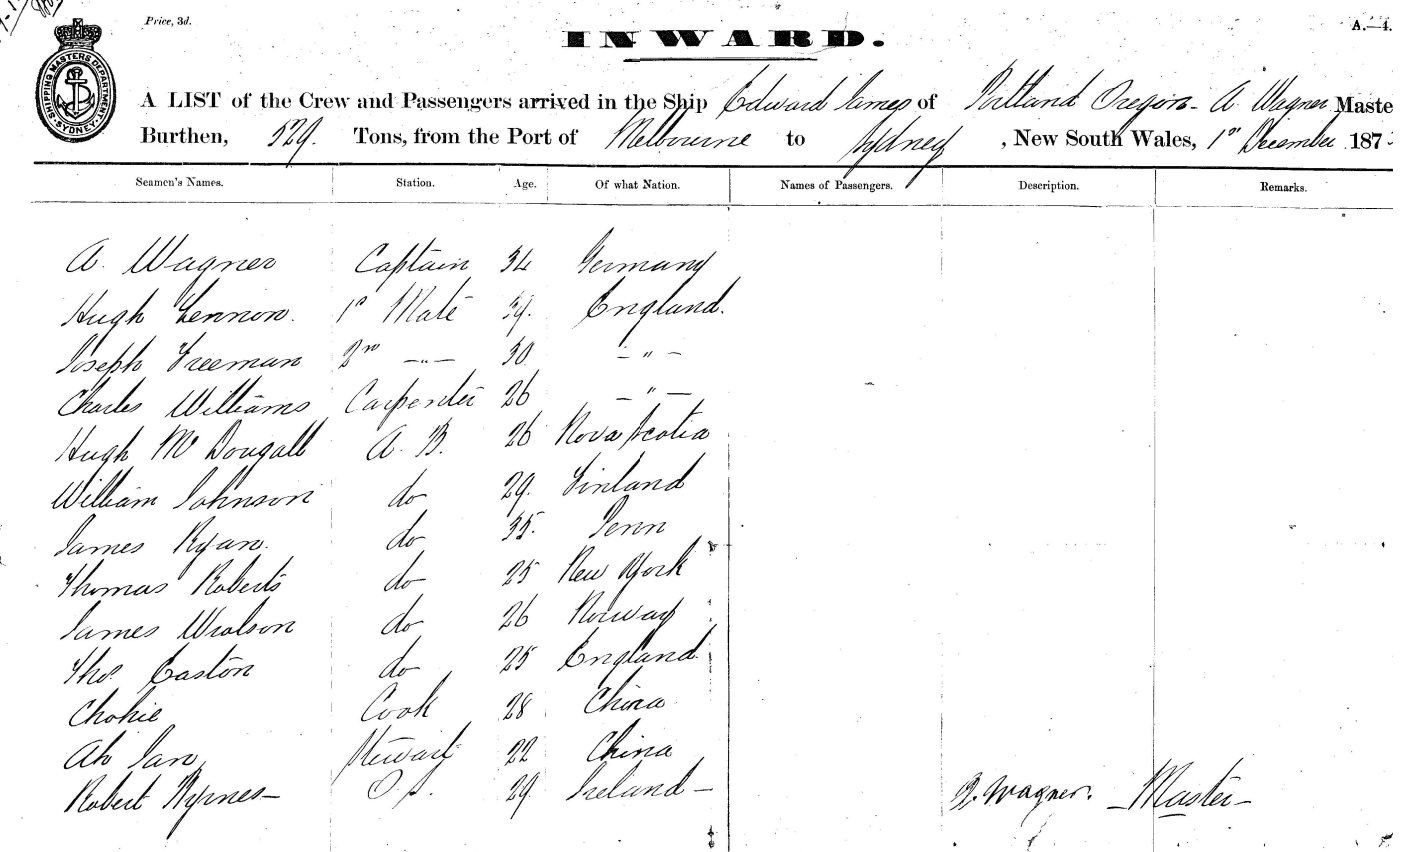 Price, 3d.
A.—4.
INWARD.
SHIPPING MASTERS DEPARTMENT. SYDNEY.
A LIST of the Crew and Passengers arrived in the Ship Edward James of Portland Oregon - A Wagner Maste
Burthen, 529. Tons, from the Port of Melbourne to Sydney, New South Wales, 1st December 187
Seamen's Names. Station. Age. Of what Nation. Names of Passengers. Description. Remarks.
A. Wagner Captain 34 Germany
Hugh Lennon. 1st Mate 39. England.
Joseph Freeman 2nd —"— 30 - " -
Charles Williams Carpenter 26 - " -
Hugh Mc Dougall A. B. 26 Nova Scotia
William Johnson do 29. Finland
James Ryan. do 35. Penn
Thomas Roberts do 25 New York
James Wialson do 26 Norway
Thos. Easton do 25 England
Chokie Cook 28 China
Ah Ian Steward 22 China
Robert Byrnes— O. S. 29 Ireland —
A. Wagner. — Master —